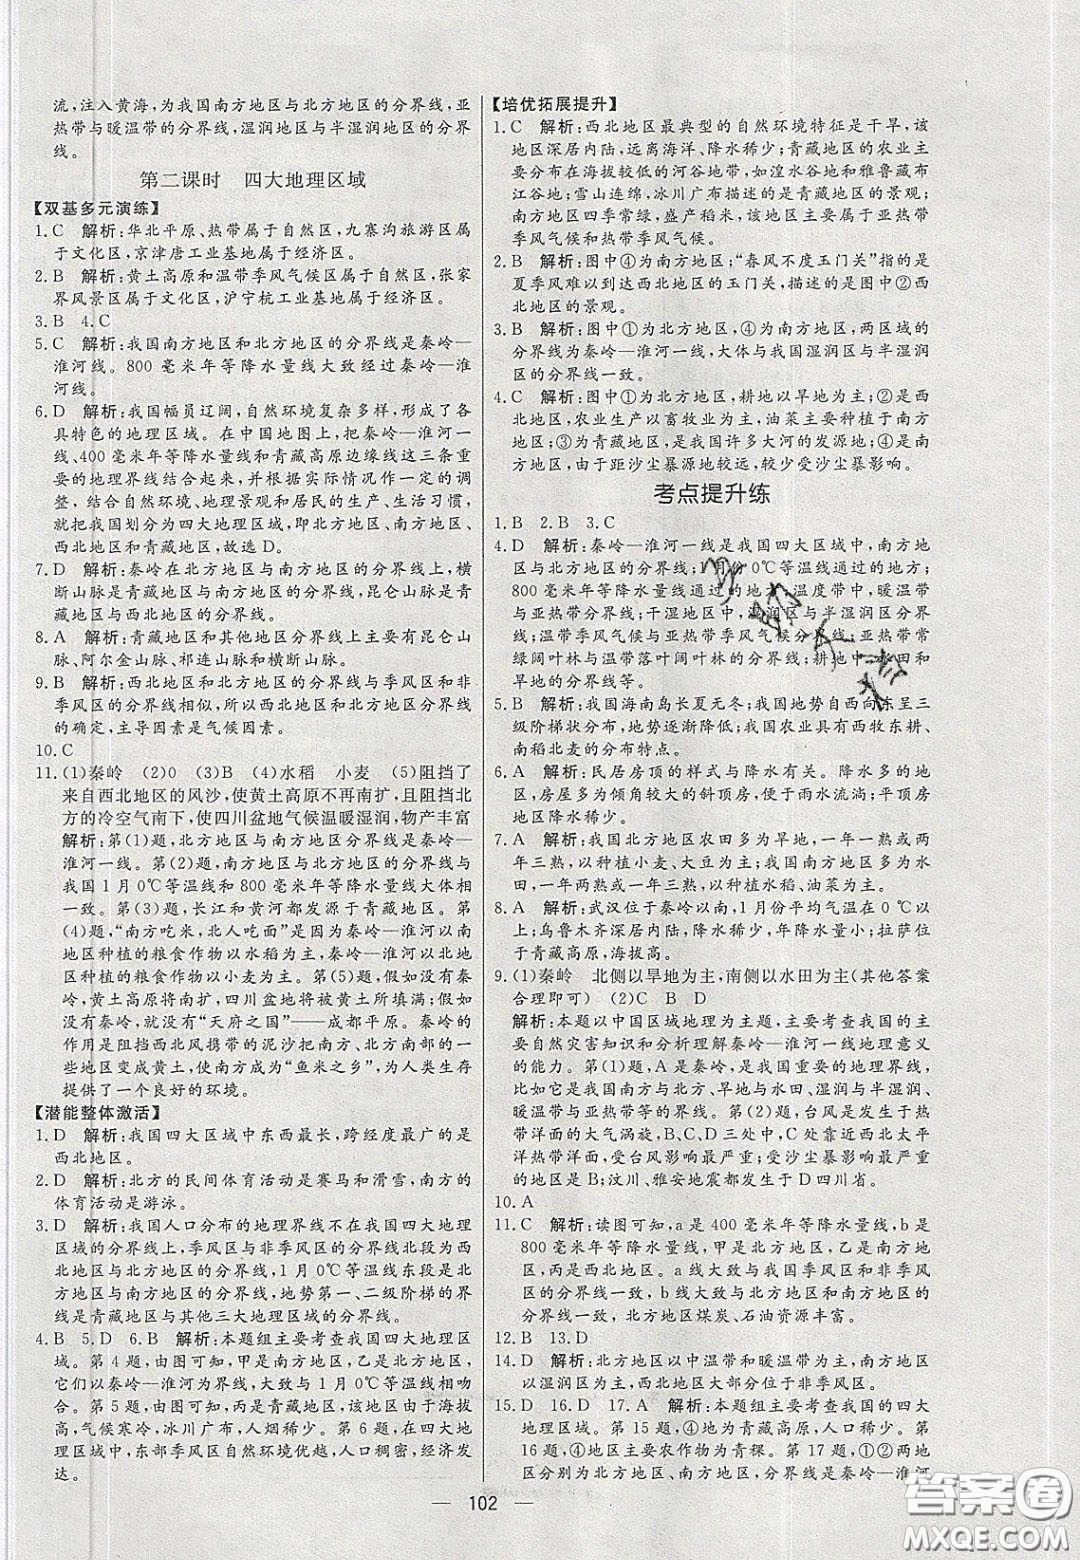 流,注入黄海,为我国南方地区与北方地区的分界线,亚
热带与暖温带的分界线,湿润地区与半湿润地区的分界
线。
第二课时 四大地理区域
【双基多元演练】
1. C 解析:华北平原、热带属于自然区,九寨沟旅游区属
于文化区,京津唐工业基地属于经济区。
2. B 解析:黄土高原和温带季风气候区属于自然区,张家
界风景区属于文化区,沪宁杭工业基地属于经济区。
3. B 4. C
5. C 解析:我国南方地区和北方地区的分界线是秦岭—
淮河线。800 毫米年等降水量线大致经过秦岭—淮
河线。
6. D 解析:我国幅员辽阔,自然环境复杂多样,形成了各
具特色的地理区域。在中国地图上,把秦岭—淮河一
线、400 毫米年等降水量线和青藏高原边缘线这三条重
要的地理界线结合起来,并根据实际情况作一定的调
整,结合自然环境、地域差异和居民的生产、生活习惯,
就把我国划分为四大地理区域,即北方地区、南方地区、
西北地区和青藏地区,故选 D。
7. D 解析:秦岭在北方地区与南方地区的分界线上,横
断山脉是青藏地区与南方地区的分界线,昆仑山脉是青
藏地区与西北地区的分界线。
8. A 解析:青藏地区和其他地区分界线上主要有昆仑山
脉、阿尔金山脉、祁连山脉和横断山脉。
9. B 解析:西北地区和北方地区的分界线与季风区和非
季风区的分界线相似,所以西北地区和北方地区界线的
确定,主导因素是气候因素。
10. C
11. (1)秦岭 (2)0 (3)B (4)水稻 小麦 (5)阻挡了
来自西北地区的风沙,使黄土高原不再南扩,且阻挡北
方的冷空气南下,使四川盆地气候温暖湿润,物产丰富
解析:第(1)题,北方地区与南方地区的分界线是秦岭—
淮河一线。第(2)题,南方地区与北方地区的分界线与
我国 1 月 0℃等温线和 800 毫米年等降水量线大体相
一致。第(3)题,长江和黄河都发源于青藏地区。第
(4)题,“南方吃米,北人吃面”是因为秦岭—淮河以南
地区种植的粮食作物以水稻为主,秦岭—淮河以北地
区种植的粮食作物以小麦为主。第(5)题,假如没有秦
岭,黄土高原将南扩,四川盆地将被黄土所填满;假如
没有秦岭,就没有“天府之国”——成都平原。秦岭的
作用是阻挡西北风携带的泥沙向南方,使北方南部的一
些地区变成黄土高原,南方成为“鱼米之乡”,为人类生存
提供了一个良好的环境。
【潜能整体激活】
1. D 解析:我国四大区域中东西最长,跨经度最广的是
西北地区。
2. D 解析:北方的民间体育活动是赛马和滑雪,南方的
体育活动是游泳。
3. D 解析:我国人口分布的地理界线不在我国四大地理
区域的分界线上,季风区与非季风区的分界线北段为西
北地区与北方地区的分界线,1 月 0℃等温线东段是南
方地区与北方地区的分界线,地势第一、二级阶梯的界
线是青藏地区与其他三大地理区域的分界线。
4. B 5. D 6. B 解析:本题组主要考查我国四大地理区
域。第 4 题,由图可知,甲是南方地区,乙是北方地区,
它们以秦岭—淮河为分界线,大致与 1 月 0℃等温线相
吻合。第 5 题,由图可知,丙是青藏地区,该地区海拔
高,气候寒冷,冰川广布,人烟稀少。第 6 题,在四大地
理区域中,东部季风区自然环境优越,人口稠密,经济发
达。
【培优拓展提升】
1. C 解析:西北地区最典型的自然环境特征是干旱,该
地区深居内陆,远离海洋、降水稀少;青藏地区的农业主
要分布在海拔较低的河谷地带,如湟水谷地、雅鲁藏布
江谷地;雪山连绵,冰川广布描述的是青藏地区的景观;
南方地区四季常绿,盛产稻米,该地区主要属于亚热带
季风气候和热带季风气候。
2. B 解析:图中④为南方地区;“春风不度玉门关”指的是
夏季风难以到达西北地区的玉门关,描述的是图中②西
北地区的景观。
3. B 解析:图中①为北方地区,④为南方地区,两区域的
分界线为秦岭—淮河一线,大体与我国湿润区与半湿润
区的分界线一致。
4. C 解析:图中①为北方地区,耕地以旱地为主;②为西
北地区,农业生产以畜牧业为主,油菜主要种植于南方
地区;③为青藏地区,是我国许多大河的发源地;④是南
方地区,由于距沙尘暴源地较远,较少受沙尘暴影响。
考点提升练
1. B 2. B 3. C
4. D 解析:秦岭—淮河一线是我国四大区域中,南方地
区与北方地区的分界线;1月份 0℃等温线通过的地方;
800 毫米年等降水量线通过的地方;温度带中,暖温带
与亚热带分界线;干湿地区中,湿润区与半湿润区分界
线;温带季风气候与亚热带季风气候分界线,亚热带常
绿阔叶林与温带落叶阔叶林的分界线;耕地中水田和
旱地的分界线等。
5. B 解析:我国海南岛长夏无冬;我国地势自西向东呈三
级阶梯状分布,地势逐渐降低;我国农业具有西牧东耕、
南稻北麦的分布特点。
6. A 解析:民居房顶的样式与降水有关。降水多的地
区,房屋多为倾斜较大的斜顶房,便于雨水流淌;平顶房
地区降水稀少。
7. A 解析:我国北方地区农田多为旱地,一年一熟或两
年三熟,以种植小麦、大豆为主;我国南方地区多为水
田,一年两熟或三熟,以种植水稻、油菜为主。
8. A 解析:武汉位于秦岭以南,1 月份平均气温在 0 ℃以
上;乌鲁木齐深居内陆,降水稀少,年降水量小;拉萨位
于青藏高原,海拔高。
9. (1)秦岭 北侧以旱地为主,南侧以水田为主(其他答案
合理即可) (2)C B D
解析:本题以中国区域地理为主题,主要考查我国的主
要自然灾害知识和分析理解秦岭—淮河一线地理意义
的能力。第(1)题,A 是秦岭,是我国重要的地理界线,
大致是南方与北方、旱地与水田、湿润与半湿润、
暖温带与亚热带等的界线。第(2)题,台风是发生在热
带洋面的大气涡旋,B、C、D 三处中,C 靠近西北太平
洋洋面,受台风影响大;受沙尘暴影响最大、最严重
的地区是 B;汶川、雅安地震都发生于 D 四川省。
10. A
11. C 解析:读图可知,a 是 400 毫米年等降水量线,b 是
800 毫米年等降水量线,甲是北方地区,乙是南方地
区,丙是西北地区。a 线大致与季风区和非季风区的
分界线一致,b 线大致与北方地区和南方地区的
分界线一致,北方地区煤炭、石油资源丰富。
12. B 13. D
14. D 解析:北方地区以中温带和暖温带为主,南方地区
以湿润区为主,西北地区大部分位于非季风区。
15. D 16. D 17. A 解析:本题组主要考查我国的四大
地理区域。第 15 题,④地为青藏高原,人口稀少。第
16 题,④地区主要农作物为青稞。第 17 题,①②两地
区分别为北方地区和南方地区,分界线是秦岭—淮河
— 102 —
答案圈
MXQE.COM